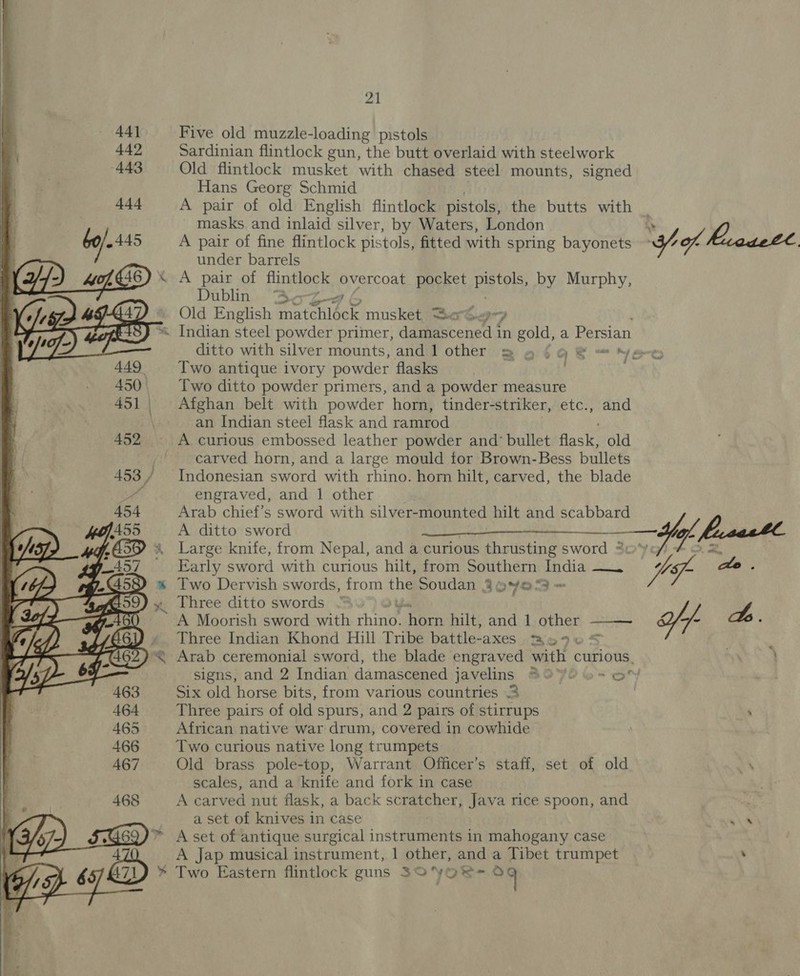 21
441 Five old muzzle-loading pistols
442 Sardinian flintlock gun, the butt overlaid with steelwork
443 Old flintlock musket with chased steel mounts, signed
Hans Georg Schmid
444 A pair of old English flintlock pistols, the butts with
masks and inlaid silver, by Waters, London
60/- 445 A pair of fine flintlock pistols, fitted with spring bayonets
under barrels
446 A pair of flintlock overcoat pocket pistols, by Murphy,
Dublin
447 Old English matchlock musket
448 Indian steel powder primer, damascened in gold, a Persian
ditto with silver mounts, and 1 other
449 Two antique ivory powder flasks
450 Two ditto powder primers, and a powder measure
451 Afghan belt with powder horn, tinder-striker, etc., and
an Indian steel flask and ramrod
452 A curious embossed leather powder and bullet flask, old
carved horn, and a large mould for Brown-Bess bullets
453 Indonesian sword with rhino. horn hilt, carved, the blade
engraved, and 1 other
454 Arab chief's sword with silver-mounted hilt and scabbard
455 A ditto sword
456 Large knife, from Nepal, and a curious thrusting sword
457 Early sword with curious hilt, from Southern India do.
458 Two Dervish swords, from the Soudan
459 Three ditto swords
460 A Moorish sword with rhino. horn hilt, and 1 other do.
461 Three Indian Khond Hill Tribe battle-axes
462 Arab ceremonial sword, the blade engraved with curious
signs, and 2 Indian damascened javelins
463 Six old horse bits, from various countries
464 Three pairs of old spurs, and 2 pairs of stirrups
465 African native war drum, covered in cowhide
466 Two curious native long trumpets
467 Old brass pole-top, Warrant Officer's staff, set of old
scales, and a knife and fork in case
468 A carved nut flask, a back scratcher, Java rice spoon, and
a set of knives in case
469 A set of antique surgical instruments in mahogany case
470 A Jap musical instrument, 1 other, and a Tibet trumpet
471 Two Eastern flintlock guns